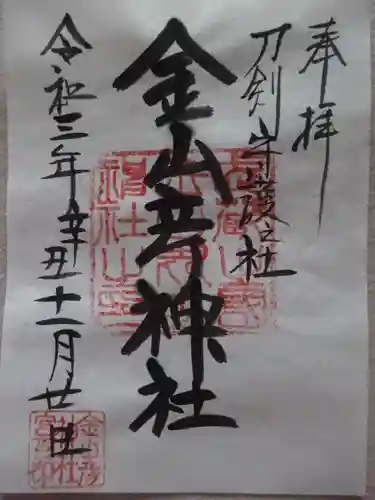 奉拝
刀剣守護之社
金山彦神社
令和三年辛丑十一月廿日